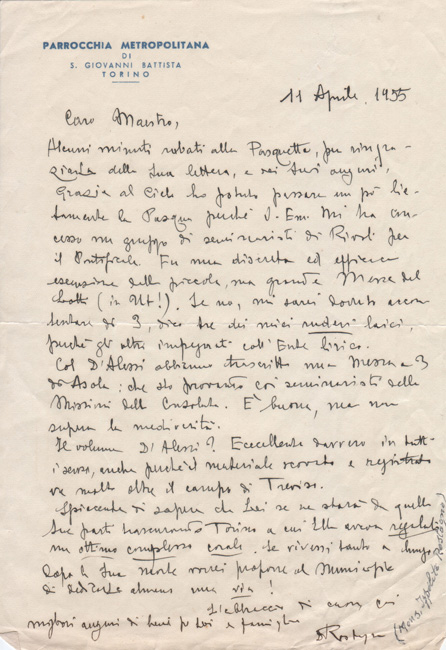 PARROCCHIA METROPOLITANA
DI
S. GIOVANNI BATTISTA
TORINO
11 Aprile 1955
Caro Maestro,
Alcuni minuti rubati alla Pasquetta, per ringra-
ziarla della Sua lettera, e dei Suoi auguri.
Grazia al Cielo ho potuto passare un pò lie-
tamente la Pasqua perchè S. Em. mi ha con-
cesso un gruppo di seminaristi di Rivoli per
il Pontificale. Fu una discreta ed efficace
esecuzione della piccola, ma grande Messa del
Lotti (in Ut!). Se no, mi sarei dovuto accon-
tentare di 3, dico tre dei miei ruderi laici,
perchè gli altri impegnati coll'Ente lirico.
Col D'Alessi abbiamo trascritto una Messa a 3
di Asola: che sto provando coi seminaristi delle
Missioni della Consolata. È buona, ma non
supera la mediocrità.
Il volume D'Alessi? Eccellente davvero in tutti
i sensi, anche perchè il materiale scovato e registrato
va molto oltre il campo di Treviso.
Spiacente di sapere che Lei se ne starà da quelle
Sue parti trascurando Torino a cui Ella aveva regalato
un ottimo complesso corale. Se vivessi tanto a lungo
dopo la Sua morte vorrei proporre al Municipio
di dedicarLe almeno una via!
L'abbraccio di cuore coi
migliori auguri di bene per Lei e famiglia
D. Rostagno
(Mons. Ippolito Rostagno)